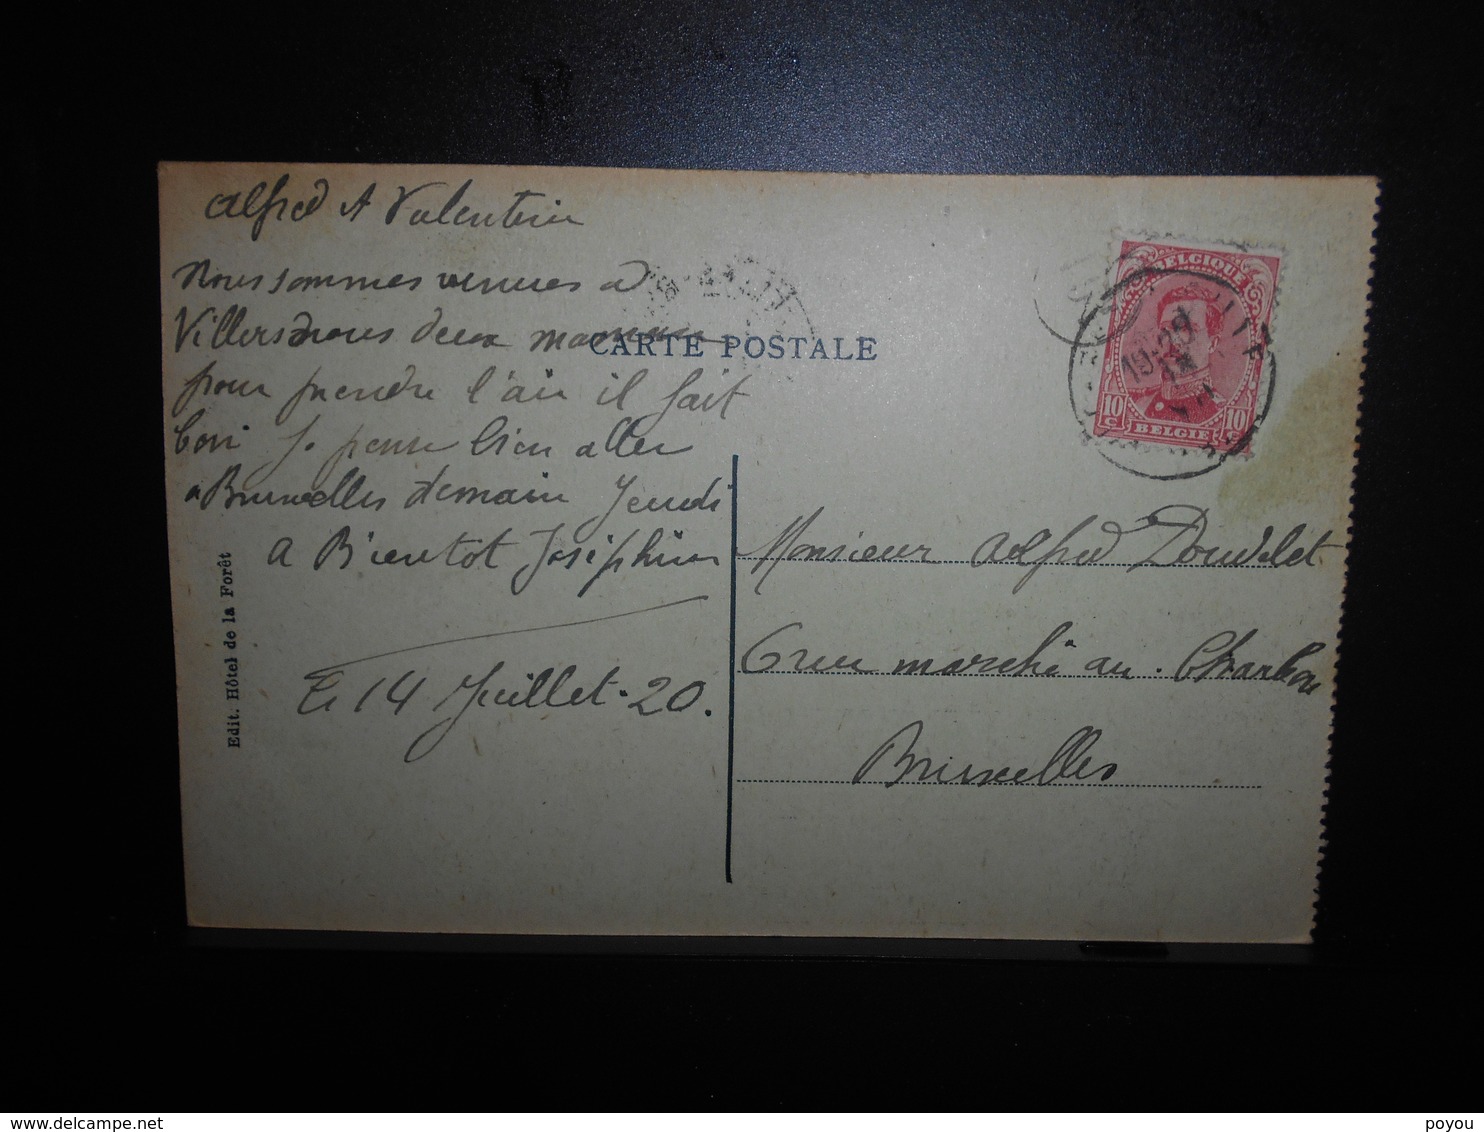 Alfred et Valentin
Nous sommes venues a
Villers nous deux maman
pour prendre l'air il fait
bon je pense bien aller
a Bruxelles demain Jeudi
a Bientot Joséphine
le 14 Juillet-20.
Edit. Hôtel de la Forêt
CARTE POSTALE
BELGIQUE
10 c 10 c
BELGIE
Monsieur Alfred Doudelet
6 rue marché au Charbon
Bruxelles
www.delcampe.net
poyou